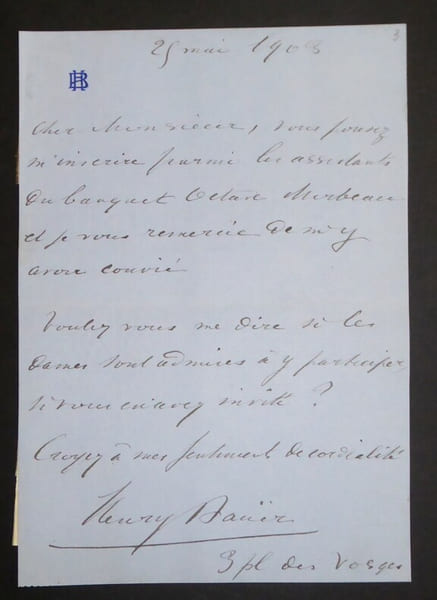 3
25 mai 1908
HB
Cher Monsieur, vous pouvez
m'inscrire parmi les assistants
du banquet Octave Mirbeau
et je vous remercie de m'y
avoir convié
Voulez vous me dire si les
dames sont admises à y participer,
si vous en avez invité ?
Croyez à mes sentiments de cordialité
Henry Bauër
3 pl des Vosges